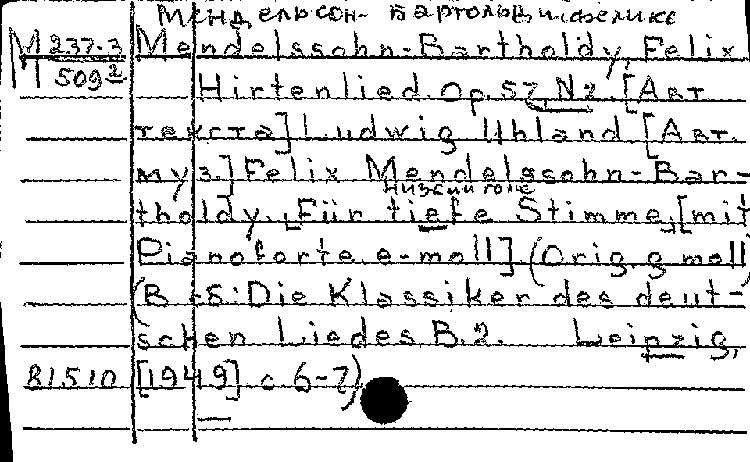 Мендельсон-Бартольди Феликс
М 237.3 Mendelssohn-Bartholdy, Felix
509² Hirtenlied. Op. 57 N2. [Авт.
текста] Ludwig Uhland [Авт.
муз.] Felix Mendelssohn-Bar-
низкий голос
tholdy. Für tiefe Stimme, [mit
Pianoforte. e-moll]. (Orig. g moll)
(В сб: Die Klassiker des deut-
schen Liedes B. 2. Leipzig,
81510 [1949] с 6-7)